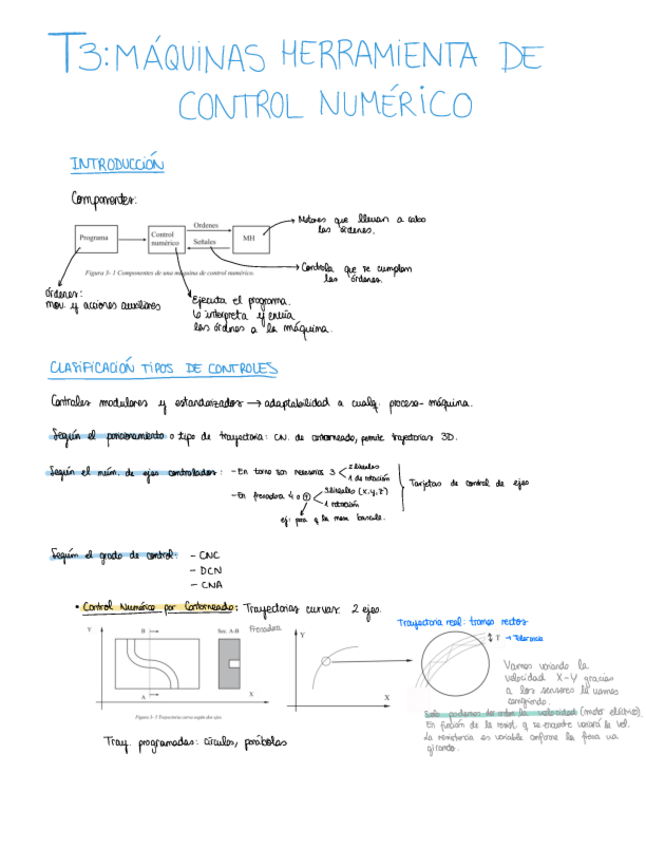 T3: MÁQUINAS HERRAMIENTA DE
CONTROL NUMÉRICO
INTRODUCCIÓN
Componentes:
Programa
Control
numérico
Ordenes
Señales
MH
Motores que llevan a cabo
las órdenes.
Controla que se cumplan
las órdenes.
Figura 3- 1 Componentes de una máquina de control numérico.
órdenes:
mov. y acciones auxiliares
Ejecuta el programa.
Lo interpreta y envía
las órdnes a la máquina.
CLASIFICACIÓN TIPOS DE CONTROLES
Controles modulares y estandarizados → adaptabilidad a cualq. proceso-máquina.
Según el posicionamiento o tipo de trayectoria: CN. de contorneado, permite trayectorias 3D.
Según el núm. de ejes controlados: - En torno son necesarios 3
2 lineales
1 de rotación
- En fresadora 4 o
3 lineales (x,y,z)
1 rotación
ej: para q la mesa bascule.
Tarjetas de control de ejes
Según el grado de control: - CNC
- DCN
- CNA
• Control Numérico por Contorneado: Trayectorias curvas. 2 ejes.
Y
B
A
X
Sec. A-B
Fresadora
Figura 3- 5 Trayectoria curva según dos ejes.
Y
X
Trayectoria real: tramos rectos
T → Tolerancia
Vamos variando la
velocidad X-Y gracias
a los sensores la vamos
corrigiendo.
Solo podemos dar orden la velocidad (motor eléctrico).
En función de la resist. q se encuentre variará la vel.
La resistencia es variable conforme la fresa va
girando.
Tray. programadas: círculos, parábolas